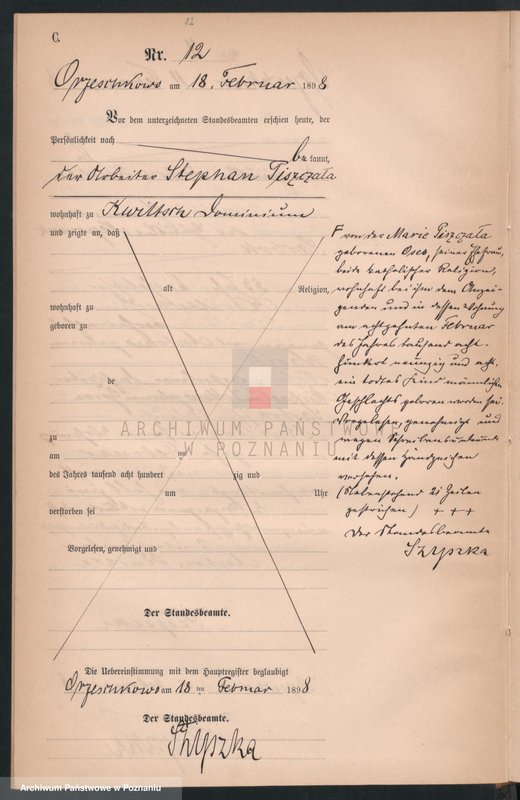 12
C.
Nr. 12
Orzeschkowo am 18. Februar 1898
Vor dem unterzeichneten Standesbeamten erschien heute, der
Persönlichkeit nach
bekannt,
der Arbeiter Stephan Piszczala
wohnhaft zu Kwiltsch Dominium
und zeigte an, daß
alt Religion,
wohnhaft zu
geboren zu
de
zu
am ten
des Jahres tausend acht hundert zig und
um Uhr
verstorben sei
Vorgelesen, genehmigt und
Der Standesbeamte.
F von der Marie Piszczała
geborenen Oses, seiner Ehefrau,
beide katholischer Religion,
wohnhaft bei ihm dem Anzei-
genden und in dessen Wohnung
am achtzehnten Februar
des Jahres tausend acht-
hundert neunzig und acht,
ein todtes Kind männlichen
Geschlechts geboren worden sei.
Vorgelesen genehmigt und
wegen Schreibensunkunde
mit dessen Handzeichen
versehen.
(Nebenstehend 21 Zeilen
gestrichen) + + +
Der Standesbeamte
Szyszka
Die Uebereinstimmung mit dem Hauptregister beglaubigt
Orzeschkowo am 18 ten Februar 1898
Der Standesbeamte.
Szyszka
ARCHIWUM PAŃSTWOWE
W POZNANIU
Archiwum Państwowe w Poznaniu